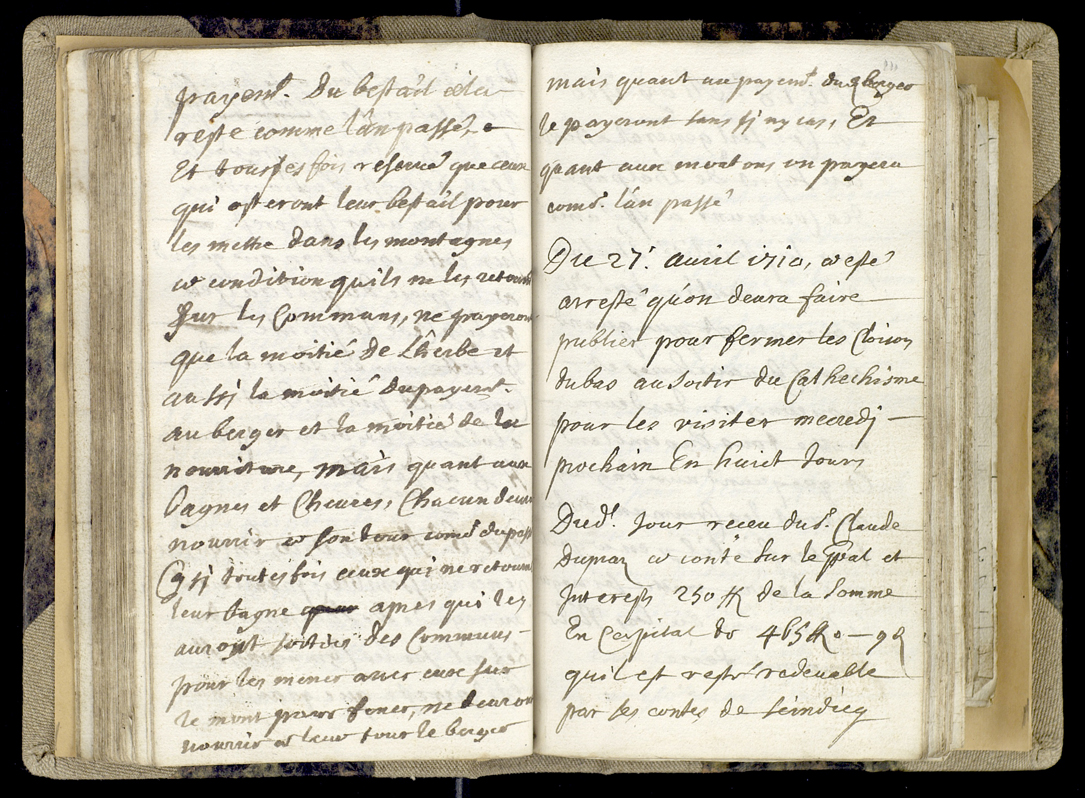 payem.t Du bestail & la
reste comme l'an passé, e
Et toutes fois reservé que ceux
qui osteront leur bestail pour
les mettre dans les montagnes
a condition quils ne les retourn
sur les Communs, ne payeront
que la moitié de L'herbe et
aussi la moitié du payemt.
au berger et la moitié de la
nourriture, mais quant aux
Vagnes et Cheures, Chacun deura
nourrir a son tour com.e du passé
si toutes fois ceux qui ne retourn
leur Vagne apres qui les
auront sorties des Communs -
pour les mener avec eux sur
le mont pour fener, ne deuront
nourrir a leur tour le berger
mais quant au payem.t du berger
le payeront sans si ny cas, Et
quant aux moutons on payera
com.e l'an passé
Du 27.e auril 1710, a esté
arresté qu'on deura faire
publier pour fermer les Cloison
du bas au sortir du Cathechisme
pour les visiter mecredj -
prochain En huict Jours
Dud.t Jour receu du s.r Claude
Dumaz a conte sur le Ppal et
Interests 250 ff de la somme
En Capital de 465 ff 0 - 9 d
quil est resté redeuable
par ses contes de seindicq